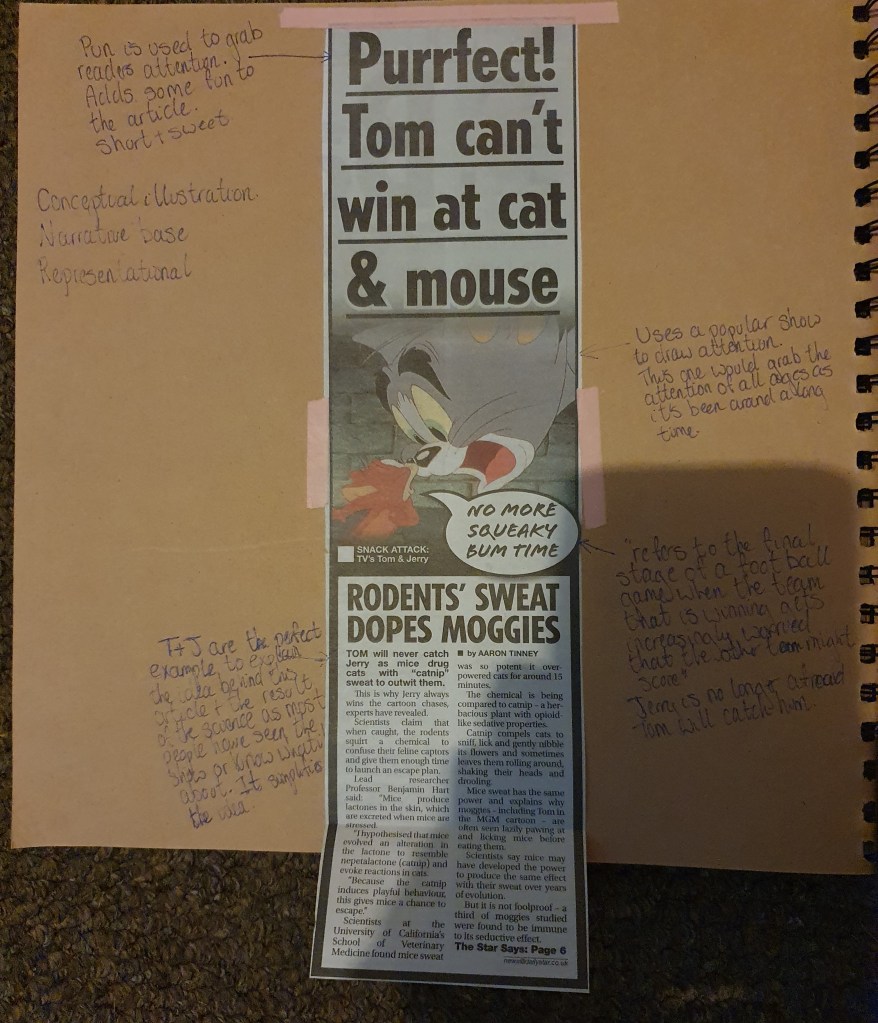 Pun is used to grab
readers attention.
Adds some fun to
the article.
Short + sweet
Conceptual illustration.
Narrative base
Representational
Purrfect!
Tom can't
win at cat
& mouse
Uses a popular show
to draw attention.
This one would grab the
attention of all ages as
it's been around a long
time.
NO MORE
SQUEAKY
BUM TIME
SNACK ATTACK:
TV's Tom & Jerry
"refers to the final
stage of a football
game when the team
that is winning acts
increasingly worried
that the other team might
score"
Jerry is no longer afraid
Tom will catch him.
T+J are the perfect
example to explain
the idea behind this
article + the result
of the science as most
people have seen the
show or know what it's
about. It simplifies
the idea.
RODENTS' SWEAT
DOPES MOGGIES
TOM will never catch
Jerry as mice drug
cats with "catnip"
sweat to outwit them.
This is why Jerry always
wins the cartoon chases,
experts have revealed.
Scientists claim that
when caught, the rodents
squirt a chemical to
confuse their feline captors
and give them enough time
to launch an escape plan.
Lead researcher
Professor Benjamin Hart
said: "Mice produce
lactones in the skin, which
are excreted when mice are
stressed.
"I hypothesised that mice
evolved an alteration in
the lactone to resemble
nepetalactone (catnip) and
evoke reactions in cats.
"Because the catnip
induces playful behaviour,
this gives mice a chance to
escape."
Scientists at the
University of California's
School of Veterinary
Medicine found mice sweat
■ by AARON TINNEY
was so potent it over-
powered cats for around 15
minutes.
The chemical is being
compared to catnip – a her-
bacious plant with opioid-
like sedative properties.
Catnip compels cats to
sniff, lick and gently nibble
its flowers and sometimes
leaves them rolling around,
shaking their heads and
drooling.
Mice sweat has the same
power and explains why
moggies – including Tom in
the MGM cartoon – are
often seen lazily pawing at
and licking mice before
eating them.
Scientists say mice may
have developed the power
to produce the same effect
with their sweat over years
of evolution.
But it is not foolproof – a
third of moggies studied
were found to be immune
to its seductive effect.
The Star Says: Page 6
news@dailystar.co.uk